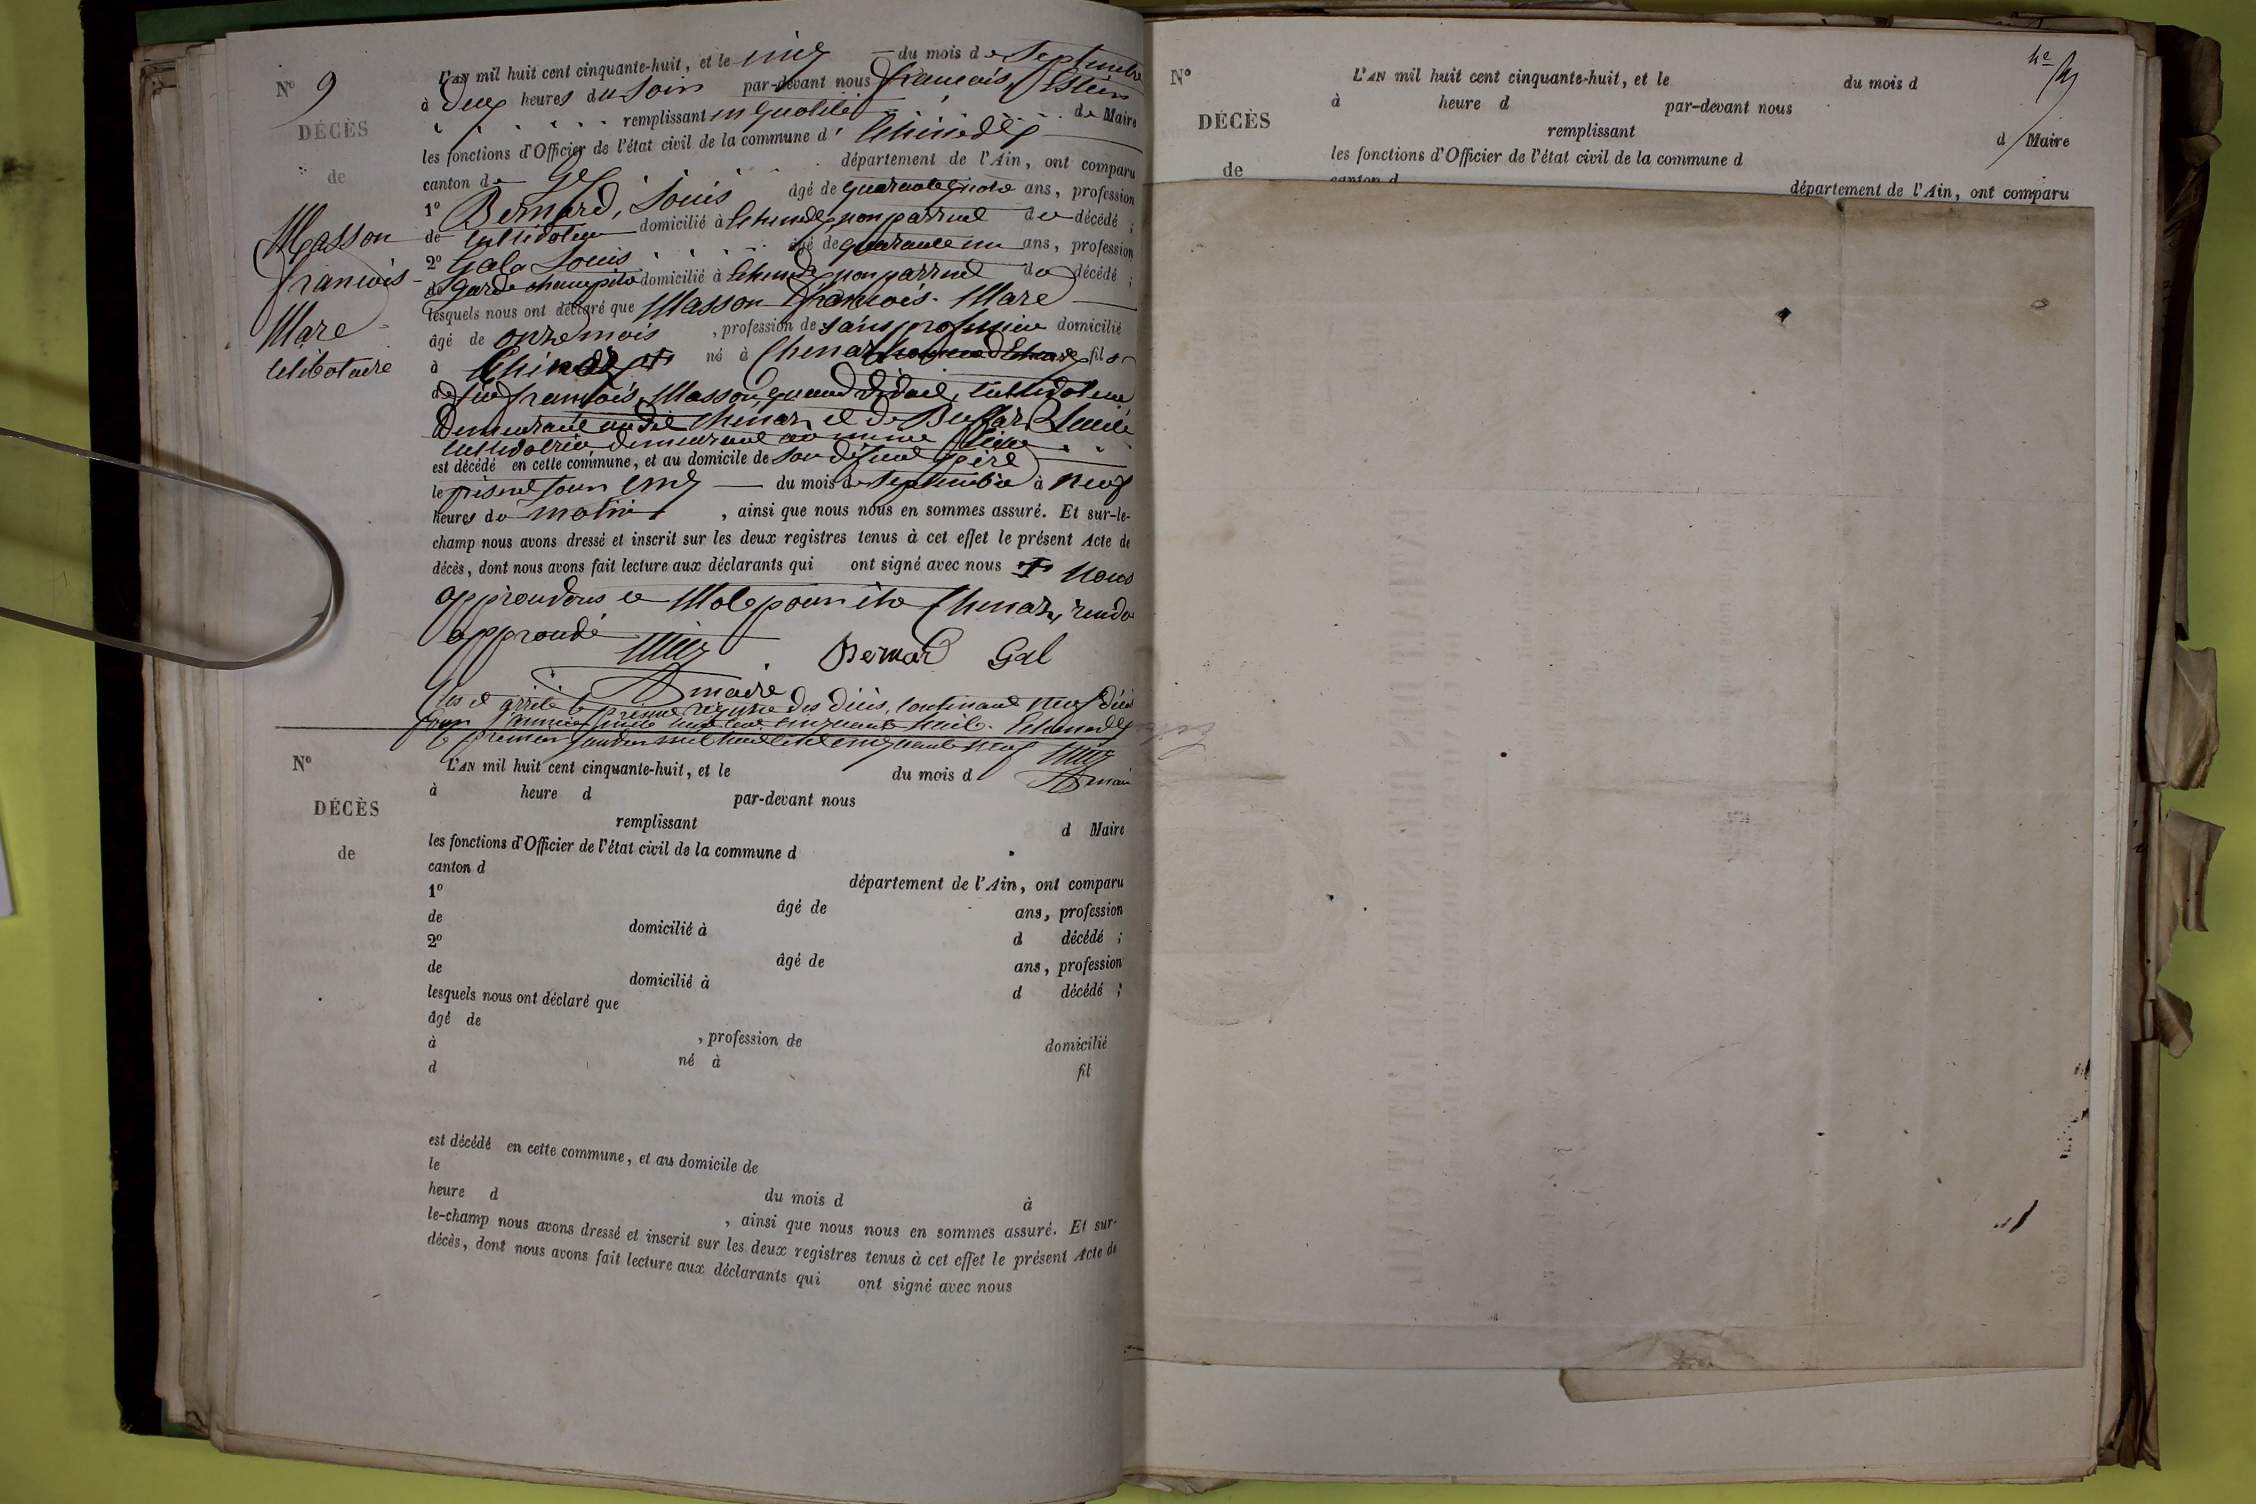 N° 9
DÉCÈS
de
Masson
francois
Mare
Celibotaire
L'AN mil huit cent cinquante-huit, et le cinq du mois de Septembre
à deux heures du Soir par-devant nous francois,
remplissant en qualité de Maire
les fonctions d'Officier de l'état civil de la commune d' Echenedex
canton de Gex département de l'Ain, ont comparu
1° Bernard, Louis âgé de quarante quatre ans, profession
de cultivateur domicilié à Echenedex non parrent du décédé ;
2° Gala Louis âgé de quarante un ans, profession
de garde champetre domicilié à Echenedex non parrent du décédé ;
lesquels nous ont déclaré que Masson francois Mare
âgé de onze mois , profession de sans profession domicilié
à né à Chenaz fils
de feu francois Masson, quand vivait, cultivateur
Demeurant au dit Chenaz et de
demeurant au même lieu
est décédé en cette commune, et au domicile de son défunt père
le présent jour cinq du mois de Septembre à neuf
heures du matin , ainsi que nous nous en sommes assuré. Et sur-le-
champ nous avons dressé et inscrit sur les deux registres tenus à cet effet le présent Acte de
décès, dont nous avons fait lecture aux déclarants qui ont signé avec nous Nous
approuvons le Mot Chenaz,
approuvé
Bernard Gal
maire
Clos et arrêté le présent régistre des décès, contenant neuf décès
pour l'année mil huit cent cinquante huit. Echenedex
le premier janvier mil huit cent cinquante neuf
maire
N°
DÉCÈS
de
L'AN mil huit cent cinquante-huit, et le du mois d
à heure d par-devant nous
remplissant d Maire
les fonctions d'Officier de l'état civil de la commune d
canton d département de l'Ain, ont comparu
1° âgé de ans, profession
de domicilié à d décédé ;
2° âgé de ans, profession
de domicilié à d décédé ;
lesquels nous ont déclaré que
âgé de , profession de domicilié
à né à fil
d
est décédé en cette commune, et au domicile de
le du mois d à
heure d , ainsi que nous nous en sommes assuré. Et sur-
le-champ nous avons dressé et inscrit sur les deux registres tenus à cet effet le présent Acte de
décès, dont nous avons fait lecture aux déclarants qui ont signé avec nous
N°
DÉCÈS
de
L'AN mil huit cent cinquante-huit, et le du mois d
à heure d par-devant nous
remplissant d Maire
les fonctions d'Officier de l'état civil de la commune d
canton d département de l'Ain, ont comparu